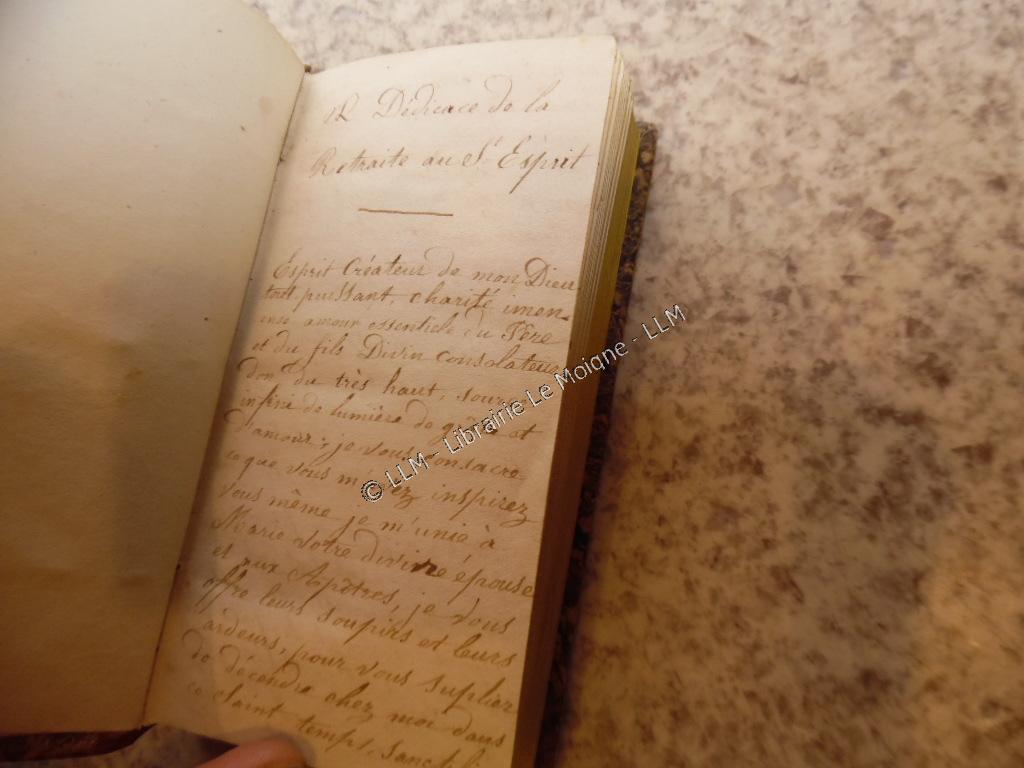 Dédicace de la
Retraite au St Esprit
Esprit Créateur de mon Dieu
tout puissant charité imen-
ense amour essentiele du Père
et du fils Divin consolateur
Don du très haut, sour
infini de lumière de et
D'amour, je vous consacre
ce que vous m'avez inspirez
Vous même je m'unie à
Marie votre divine épouse
et aux Apôtres, je vous
offre leurs soupirs et leurs
ardeurs, pour vous suplier
de décendre chez moi dans
ce saint temps,
© LLM - Librairie Le Moigne - LLM